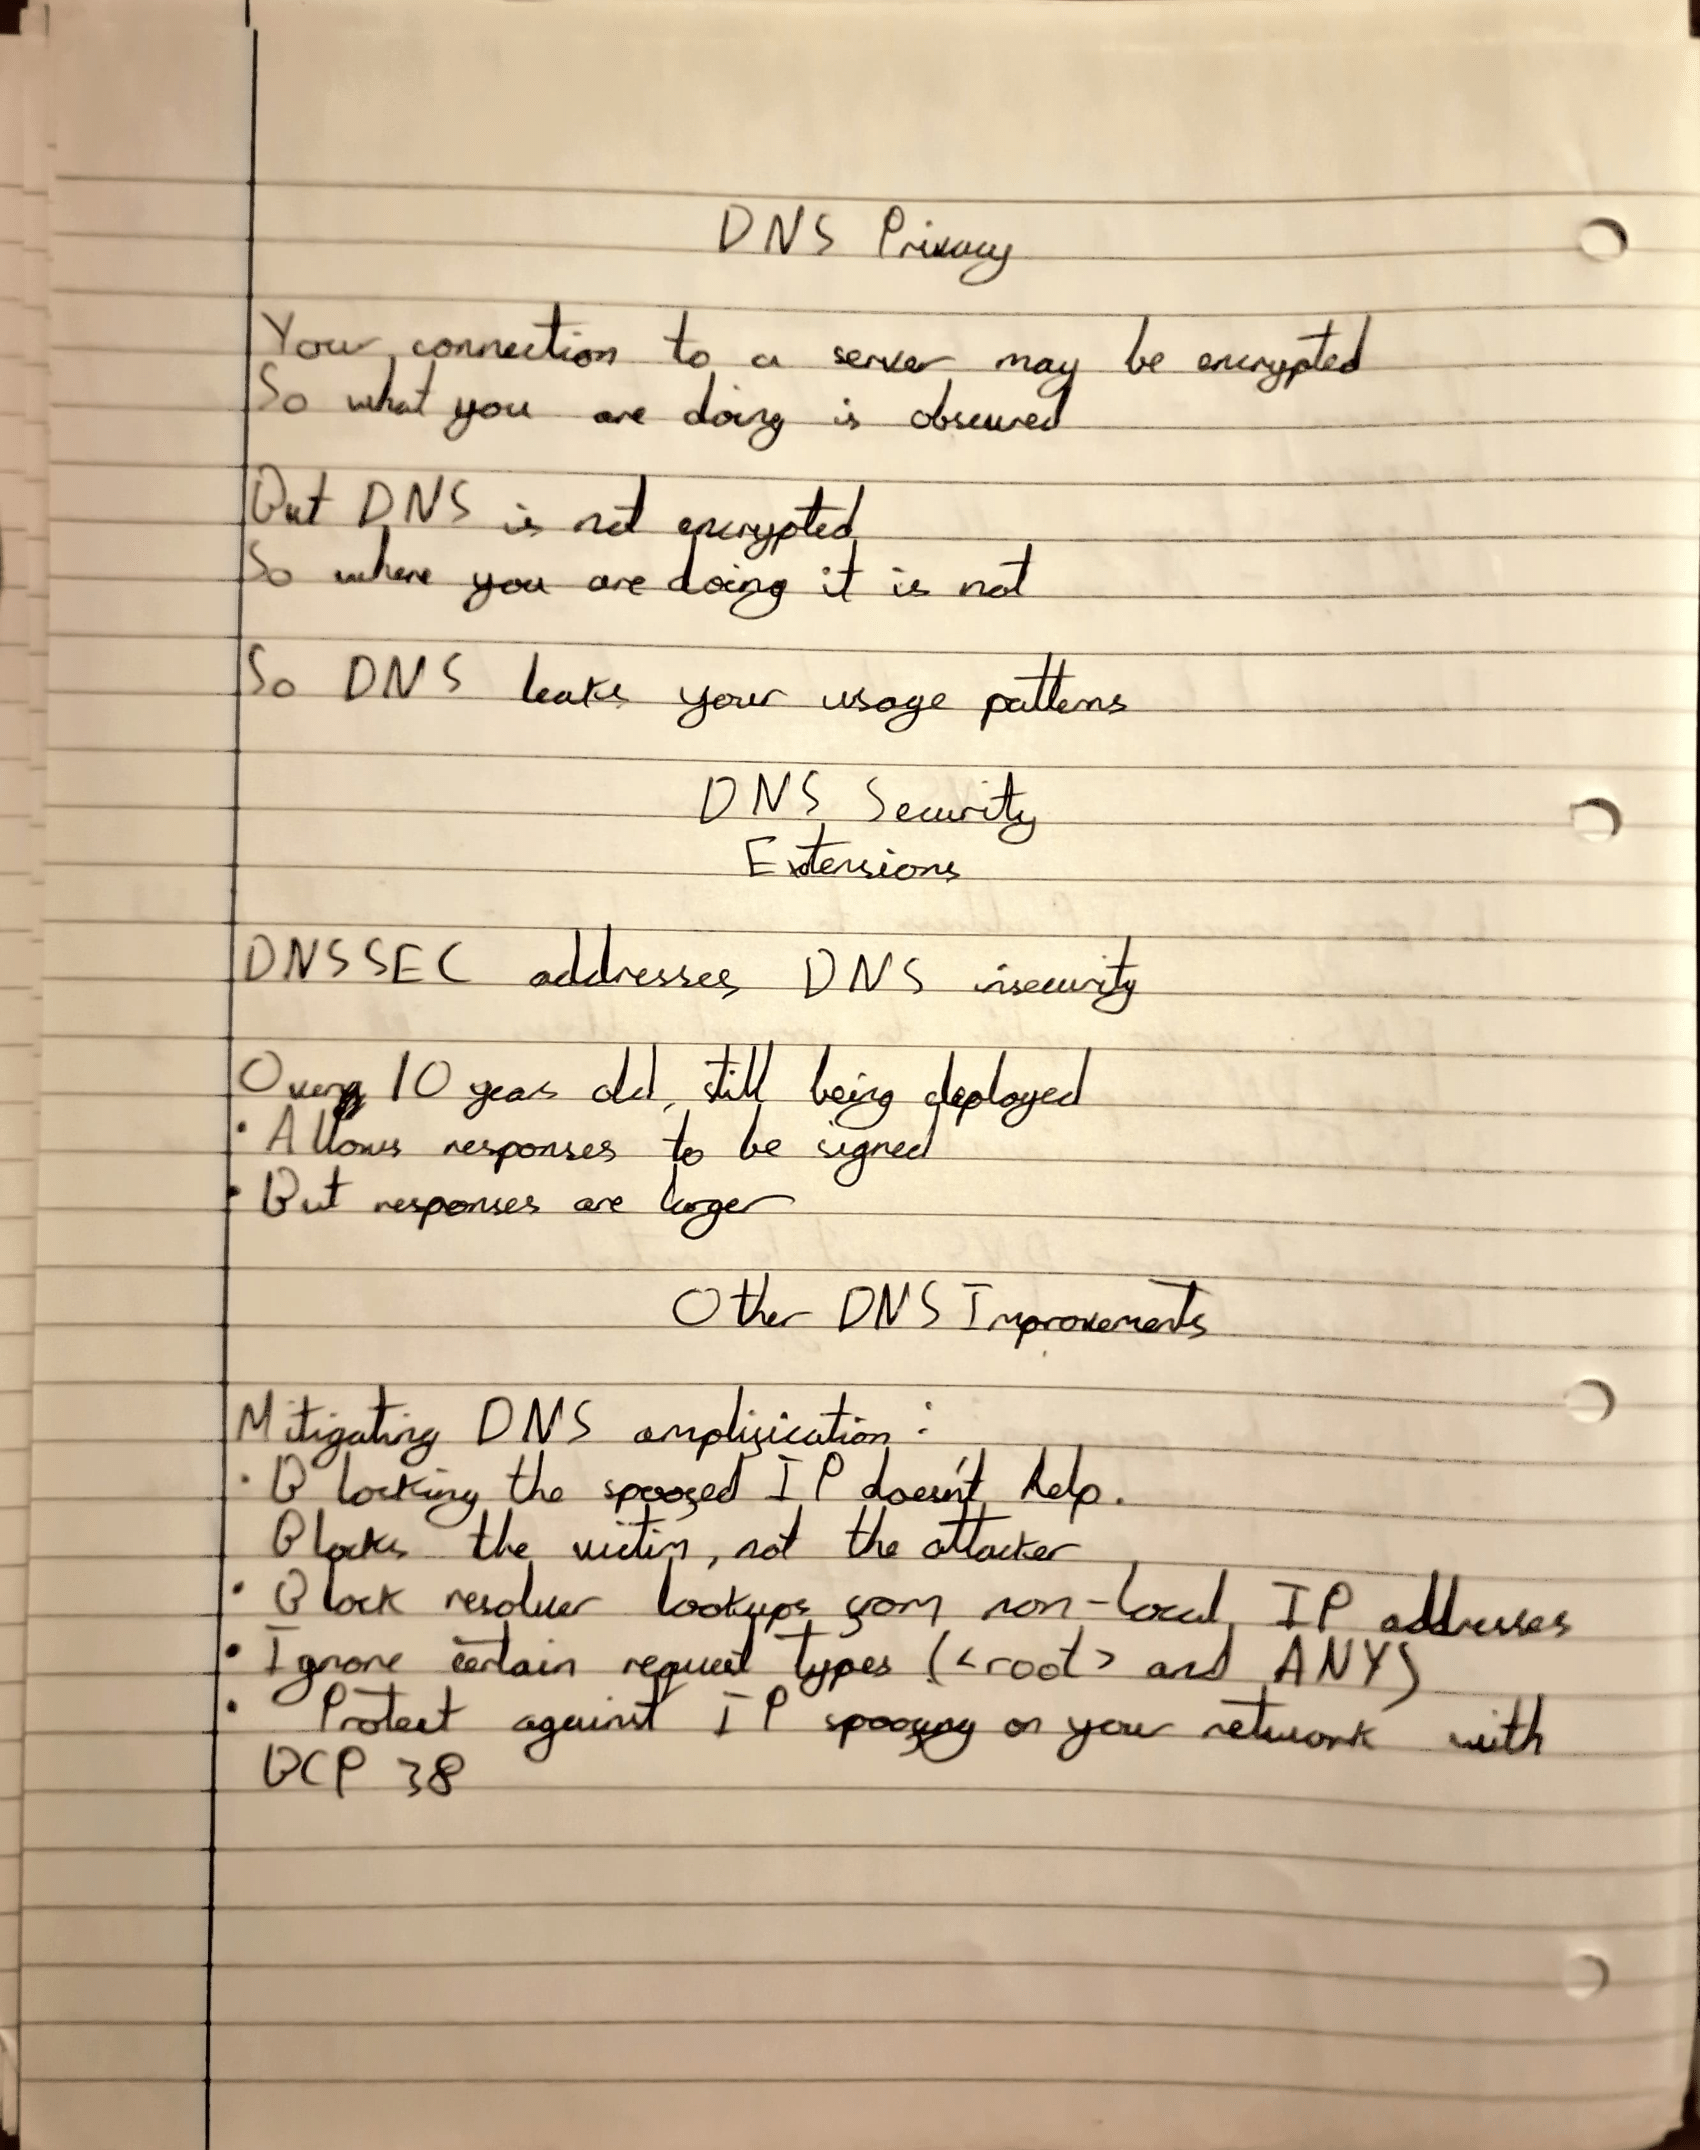 DNS Privacy
Your connection to a server may be encrypted
So what you are doing is obscured
But DNS is not encrypted
So where you are doing it is not
So DNS leaks your usage patterns
DNS Security
Extensions
DNSSEC addresses DNS insecurity
Over 10 years old, still being deployed
• Allows responses to be signed
• But responses are larger
Other DNS Improvements
Mitigating DNS amplification:
• Blocking the spoofed IP doesn't help.
Blocks the victim, not the attacker
• Block resolver lookups from non-local IP addresses
• Ignore certain request types (<root> and ANY)
• Protect against IP spoofing on your network with
BCP 38